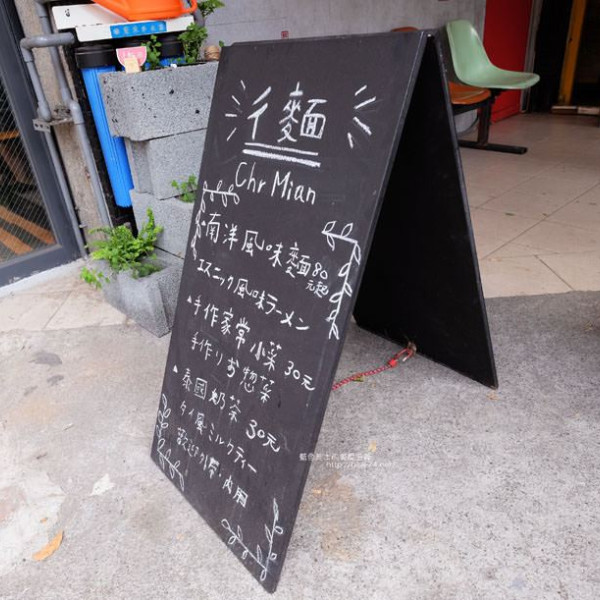 彳麵
Chr Mian
南洋風味麵80元起
エスニック風味ラーメン
手作家常小菜30元
手作りお惣菜
泰國奶茶30元
タイ風ミルクティー
歡迎外帶·內用